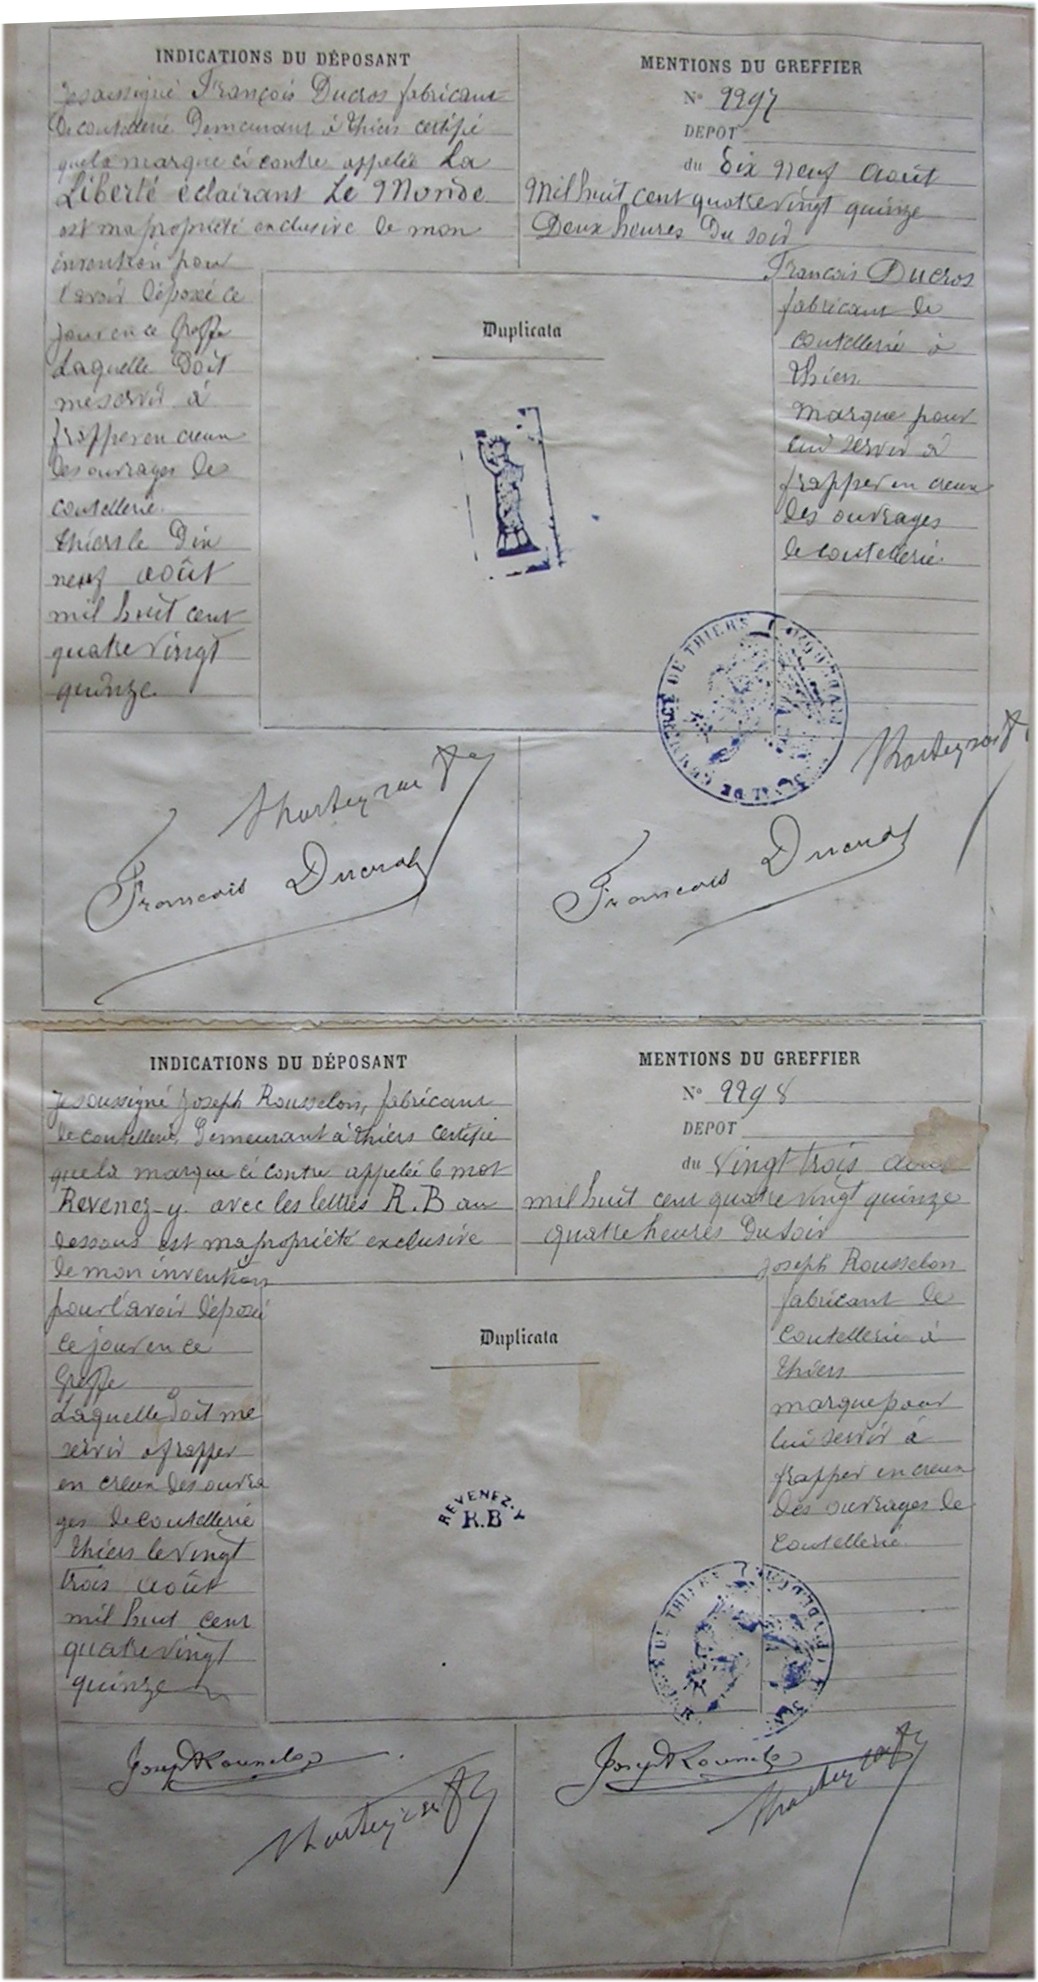 INDICATIONS DU DÉPOSANT
Je soussigné François Ducros fabricant
de coutellerie Demeurant à Thiers certifie
que la marque ci contre appelée La
Liberté éclairant Le Monde
est ma propriété exclusive de mon
invention pour
l'avoir déposé ce
jour en ce Greffe
Laquelle Doit
me servir à
frapper en creux
des ouvrages de
coutellerie
Thiers le Dix
neuf août
mil huit cent
quatre vingt
quinze
MENTIONS DU GREFFIER
N° 2297
DEPOT
du Dix neuf août
Mil huit cent quatre vingt quinze
Deux heures Du soir
François Ducros
fabricant de
coutellerie à
Thiers
Marque pour
lui servir à
frapper en creux
des ouvrages
de coutellerie
Duplicata
DE COMMERCE DE THIERS
François Ducros
François Ducros
INDICATIONS DU DÉPOSANT
Je soussigné Joseph Rousselon, fabricant
de coutellerie, Demeurant à Thiers certifie
que la marque ci contre appelée le mot
Revenez-y avec les lettres R.B au
dessous est ma propriété exclusive
de mon invention
pour l'avoir déposé
ce jour en ce
Greffe
Laquelle Doit me
servir a frapper
en creux des ouvra
ges de coutellerie
Thiers le vingt
trois août
mil huit cent
quatre vingt
quinze
MENTIONS DU GREFFIER
N° 2298
DEPOT
du Vingt trois août
mil huit cent quatre vingt quinze
quatre heures Du soir
Joseph Rousselon
fabricant de
Coutellerie à
Thiers
marque pour
lui servir à
frapper en creux
des ouvrages de
Coutellerie
Duplicata
REVENEZ-Y
R.B
DE THIERS